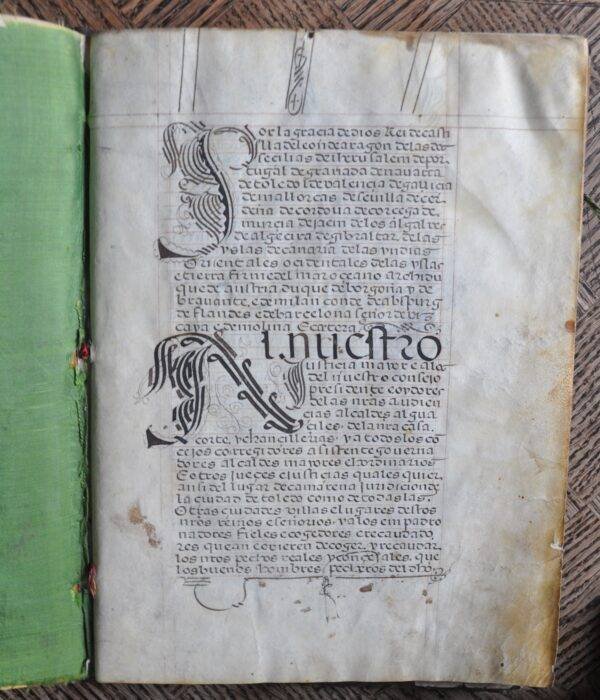 or la gracia de dios Rei de casti
lla de leon de aragon de las dos
secilias de iherusalem de por
tugal de granada de navarra
de toledo de valencia de galicia
de mallorcas de sevilla de cer
deña de cordova de corcega de
murcia de jaen de los algarves
de algecira de gibraltar de las
yslas de canaria de las yndias
Orientales ocidentales de las yslas
e tierra firme del mar oceano archidu
que de austria duque de borgoña y de
bravante, e de milan conde de abspurg
de flandes e de barcelona señor de biz
caya e de molina Ecetera
Al nuestro
justicia mayor e a los
del nuestro consejo
presidente e oydores
de las nras audien
cias alcaldes algua
ciles de la nra casa
corte, y chancillerias, y a todos los co
cejos corregidores asistente governa
dores alcaldes mayores e ordinarios
E otros jueces e justicias quales quier
ansi del lugar de camarena jurisdicion de
la ciudad de toledo como de todas las
Otras ciudades villas e lugares destos
nros reinos e señorios y a los empadro
nadores fieles e cogedores e recaudado
res que an cogieren de coger y recaudar
los nros pechos reales y concejales, que
los buenos hombres pecheros del dho